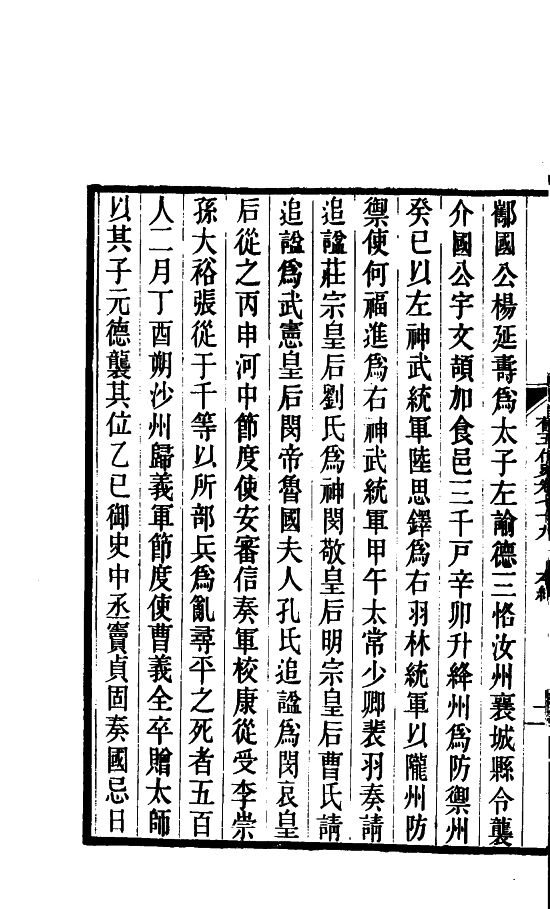 酅國公楊延壽爲太子左諭德三恪汝州襄城縣令襲
介國公宇文頡加食邑三千戸辛卯升絳州爲防禦州
癸巳以左神武統軍陸思鐸爲右羽林統軍以隴州防
禦使何福進爲右神武統軍甲午太常少卿裴羽奏請
追諡莊宗皇后劉氏爲神閔敬皇后明宗皇后曹氏請
追諡爲武憲皇后閔帝魯國夫人孔氏追諡爲閔哀皇
后從之丙申河中節度使安審信奏軍校康從受李崇
孫大裕張從于千等以所部兵爲亂尋平之死者五百
人二月丁酉朔沙州歸義軍節度使曹義全卒贈太師
以其子元德襲其位乙巳御史中丞竇貞固奏國忌日